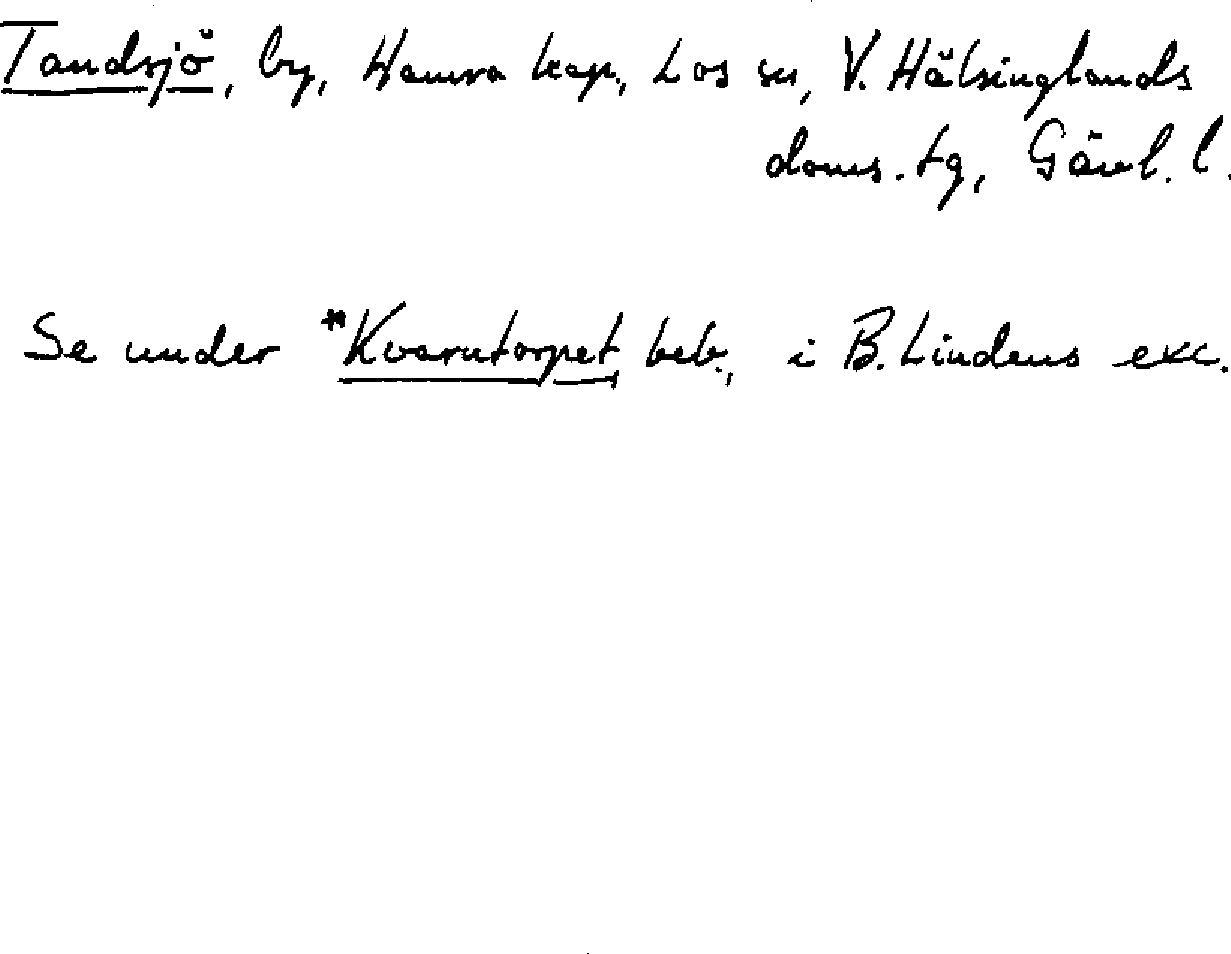 Tandsjö, by, Hamra kap., Los sn, V. Hälsinglands
doms. tg, Gävl. l.
Se under *Kvarntorpet, beb., i B. Lindens exc.